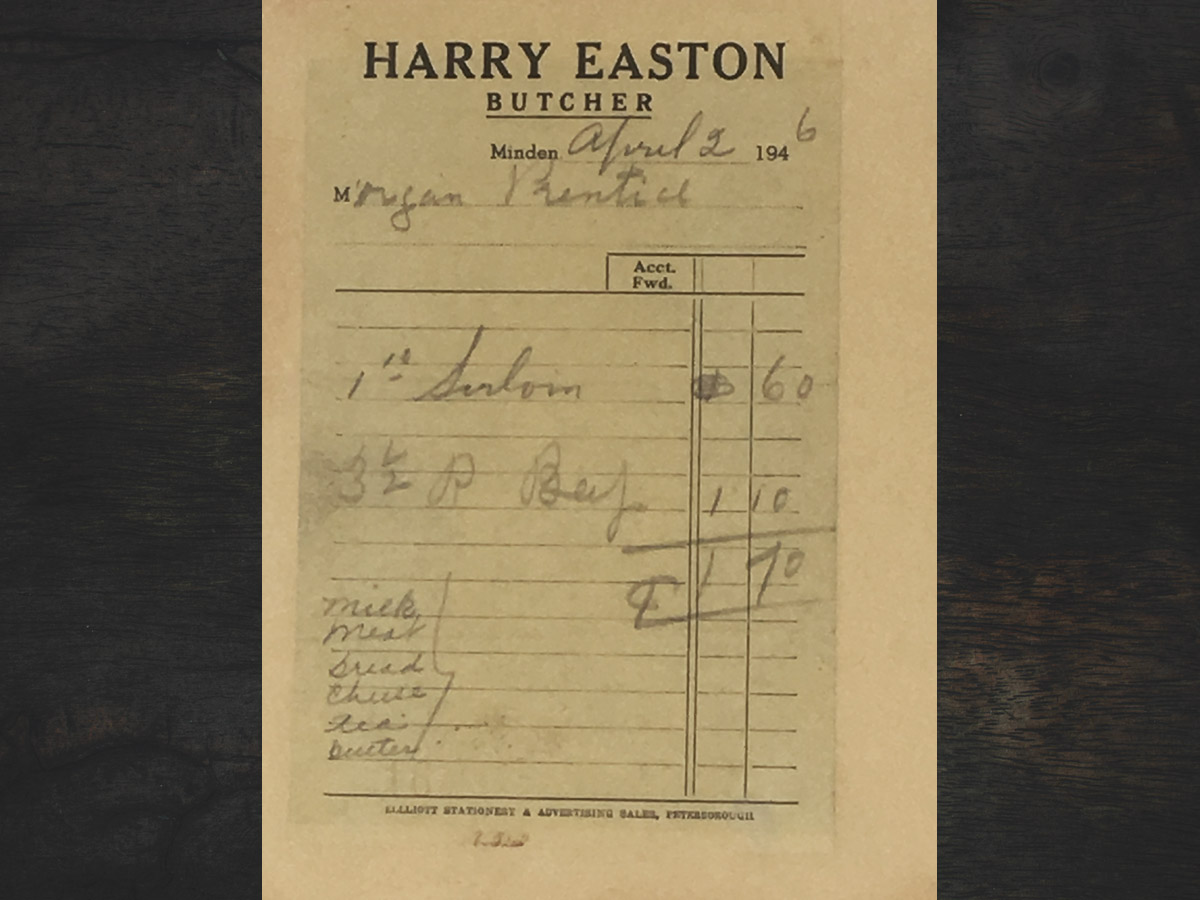 HARRY EASTON
BUTCHER
Minden April 2 1946
Morgan Prentice
Acct.
Fwd.
1 lb Sirloin 60
3½ R Beef 1 10
1 70
Milk
Meat
Bread
Cheese
Tea
Butter
ELLLIOTT STATIONERY & ADVERTISING SALES, PETERBOROUGH